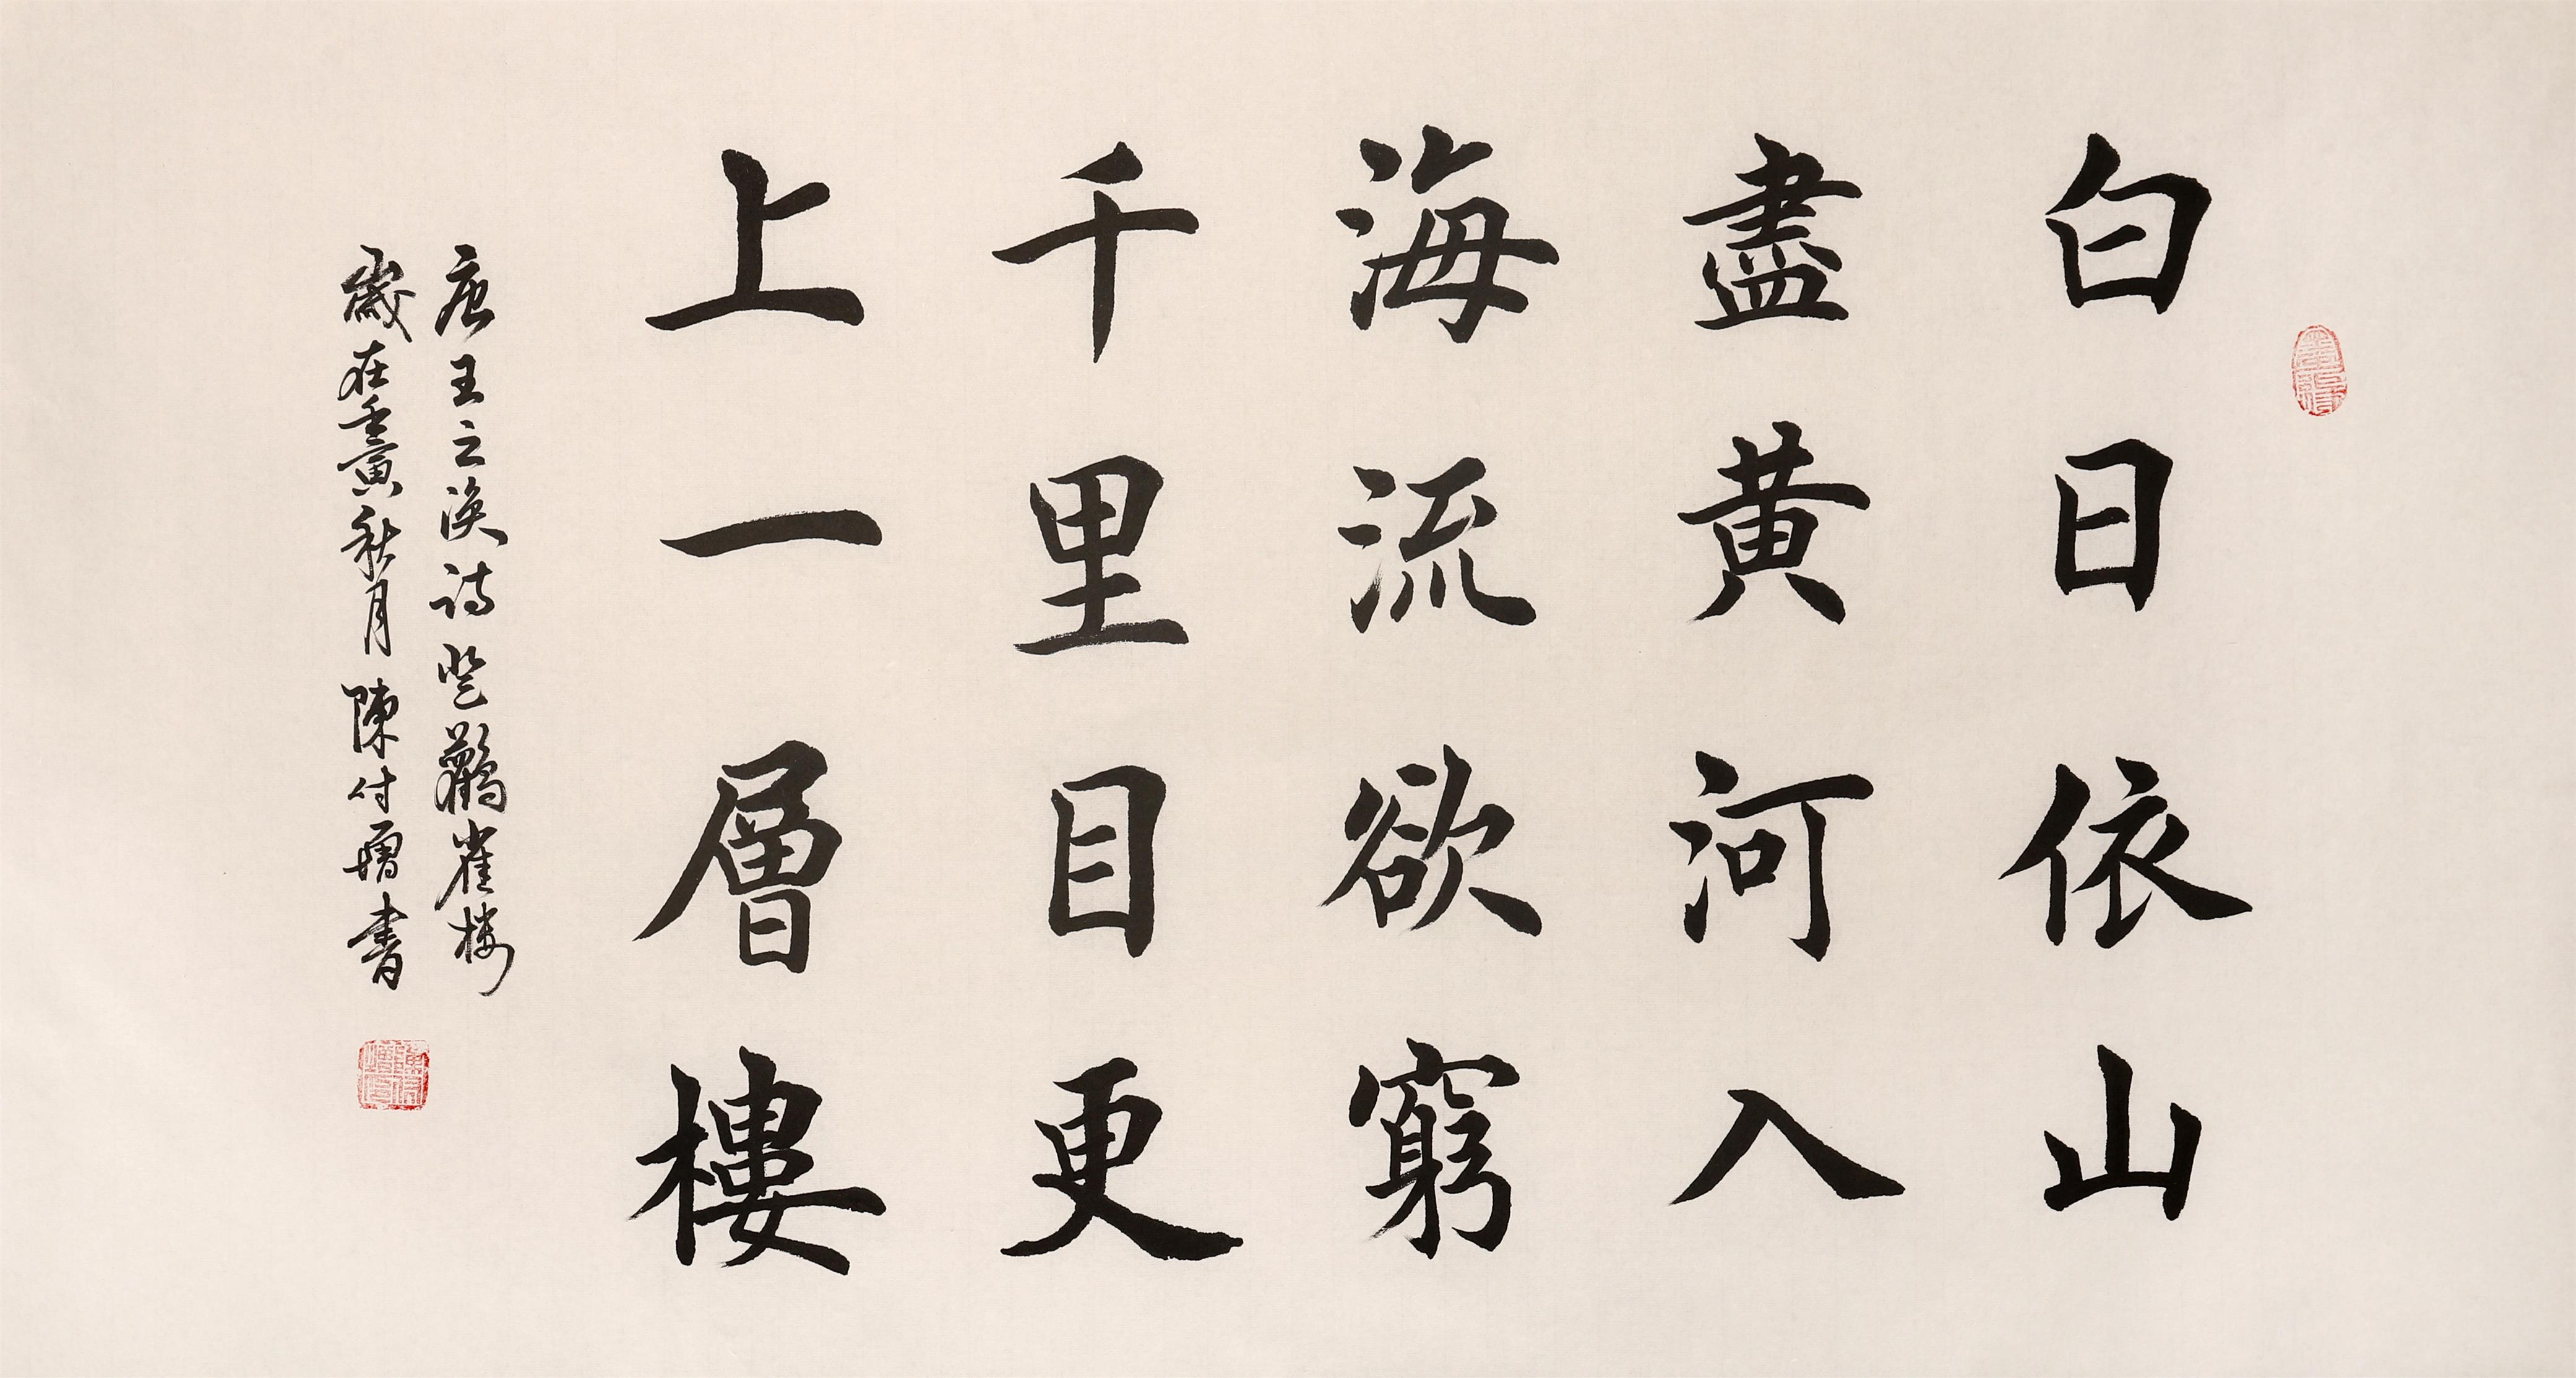 白日依山
盡黄河入
海流欲窮
千里目更
上一層樓
唐王之渙詩登鸛雀樓
歲在壬寅秋月陳付增書